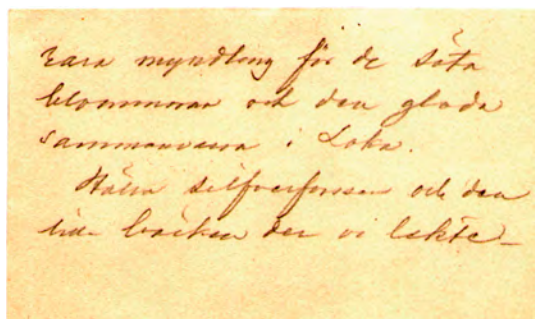 rara myndling för de söta
blommorna och den glada
sammanvaron i Loka.
Hälsa silfverforsen och den
lilla backen der vi lekte_